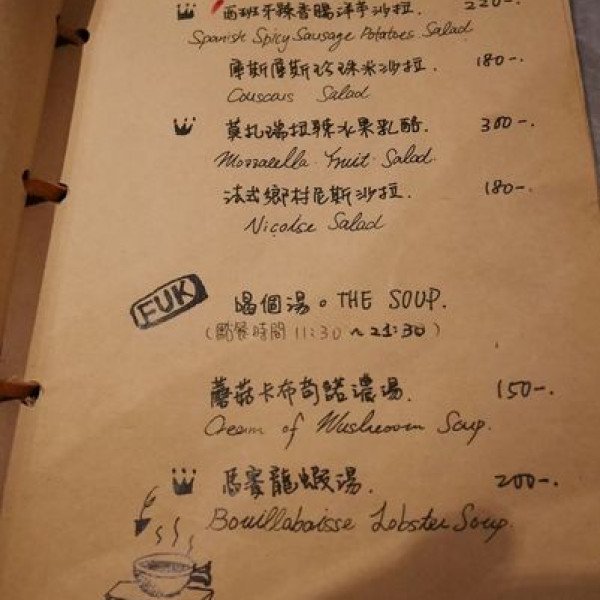 西班牙辣香腸洋芋沙拉. 220-.
Spanish Spicy Sausage Potatoes Salad
摩斯摩斯珍珠米沙拉. 180-.
Couscous Salad
莫扎瑞拉辣水果乳酪. 300-.
Mozzarella Fruit Salad.
法式鄉村尼斯沙拉. 180-.
Niçoise Salad
FUK
喝個湯。THE SOUP.
(點餐時間 11:30 ~ 21:30)
蘑菇卡布奇諾濃湯. 150-.
Cream of Mushroom Soup.
馬賽龍蝦湯. 200-.
Bouillabaisse Lobster Soup.